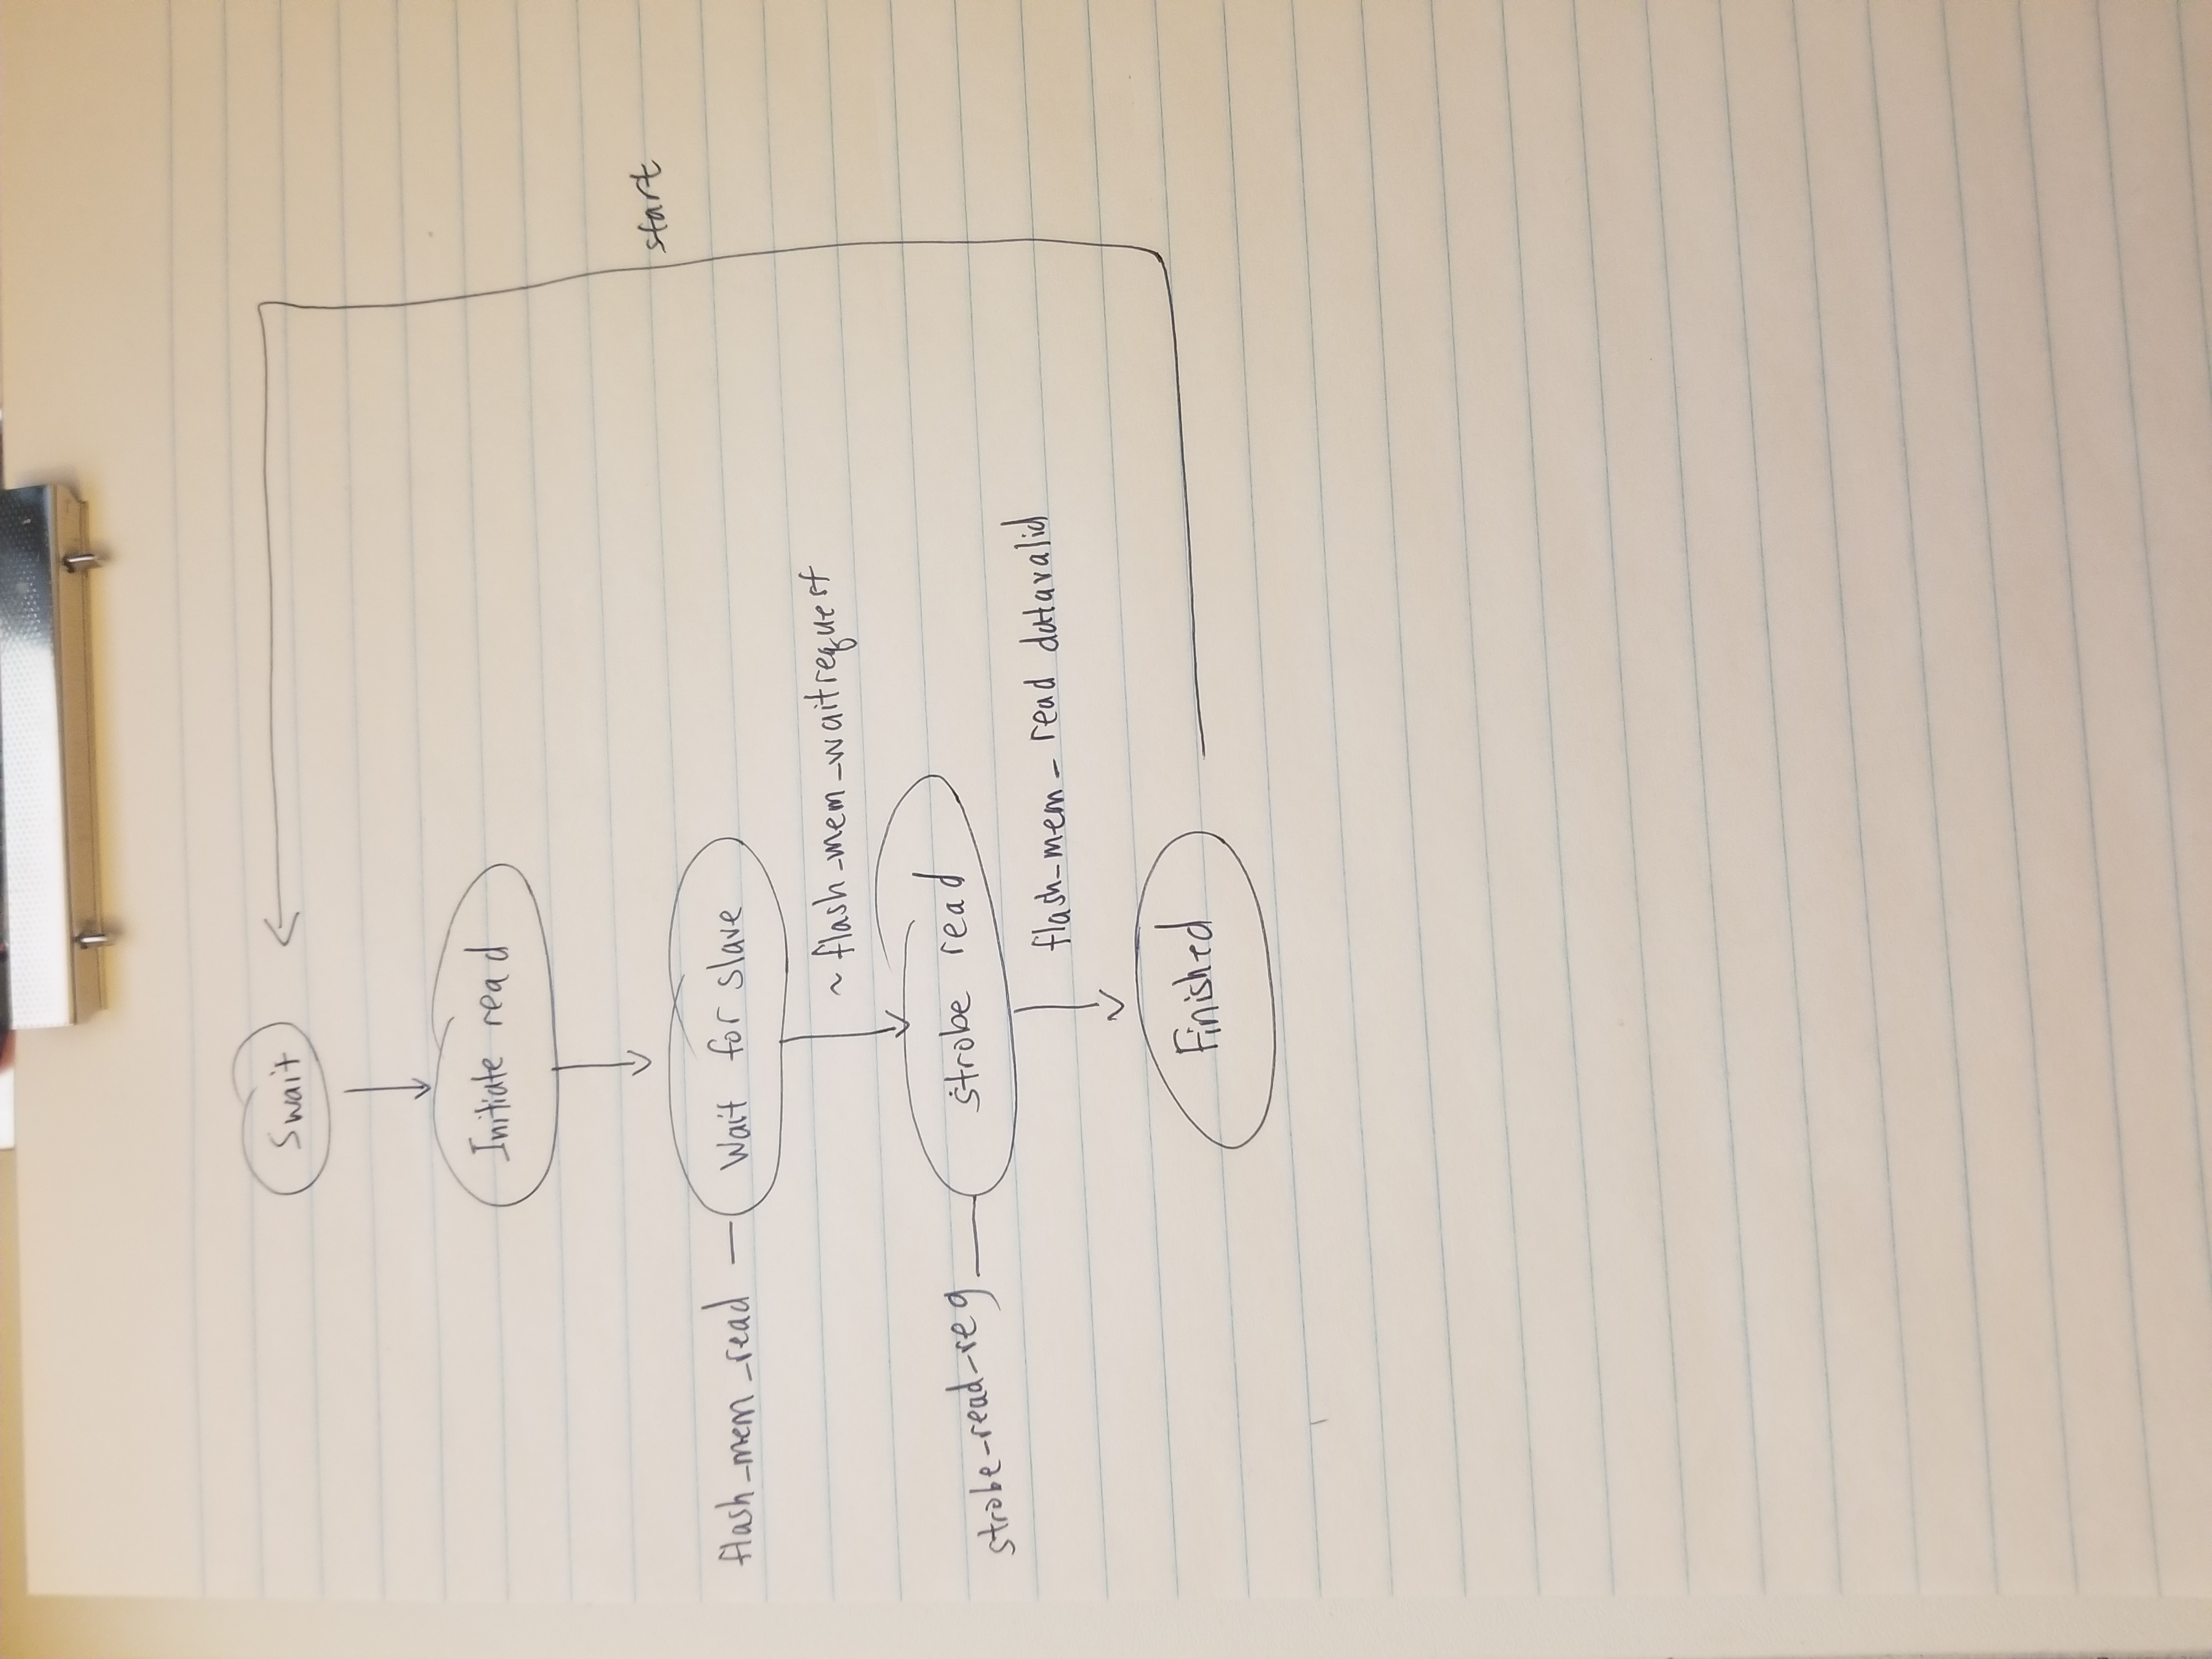 Swait
Initiate read
start
flash_mem_read
Wait for slave
~ flash_mem_waitrequest
strobe-read-reg
strobe read
flash_mem_ read datavalid
Finished